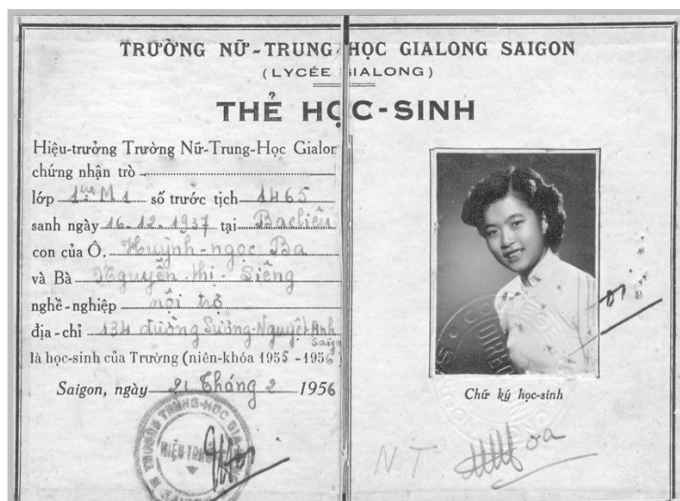 TRƯỜNG NỮ-TRUNG-HỌC GIALONG SAIGON
(LYCÉE GIALONG)
THẺ HỌC-SINH
Hiệu-trưởng Trường Nữ-Trung-Học Gialon
chứng nhận trò
lớp 1ère M1 số trước tịch 1465
sanh ngày 16.12.1937 tại Bacliêu
con của Ô. Huỳnh-ngọc Ba
và Bà Nguyễn-thị-Siềng
nghề-nghiệp nội trợ
địa-chỉ 134 đường Sương-Nguyệt Anh Saigon
là học-sinh của Trường (niên-khóa 1955-1956)
Saigon, ngày 21 tháng 2 1956
Chữ ký học-sinh
N.T. Hoa
TRƯỜNG TRUNG-HỌC GIA-
HIỆU TRƯ